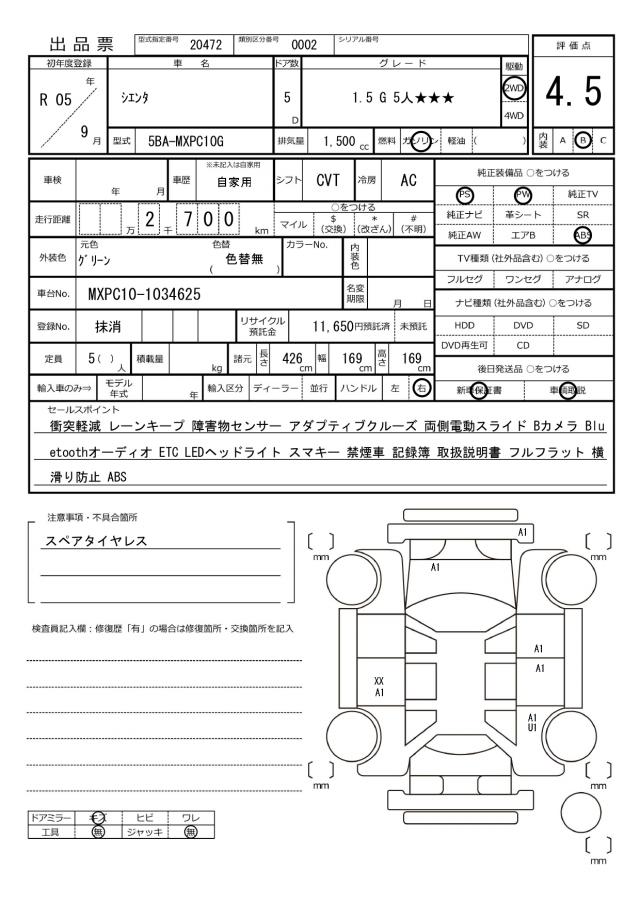 出品票
型式指定番号 20472 類別区分番号 0002 シリアル番号
評価点
4.5
内装 A B C
初年度登録 車名 ドア数 グレード 駆動
R 05 年 9 月
シエンタ 5 D 1.5 G 5人★★★ 2WD 4WD
型式 5BA-MXPC10G 排気量 1,500 cc 燃料 ガソリン 軽油 ( )
車検 年 月 車歴 ※未記入は自家用 自家用 シフト CVT 冷房 AC
走行距離 万 2 千 7 0 0 km
○をつける
マイル $ (交換) * (改ざん) # (不明)
外装色 元色 グリーン 色替 ( 色替無 ) カラーNo. 内装色
車台No. MXPC10-1034625 名変期限 月 日
登録No. 抹消 リサイクル預託金 11,650円預託済 未預託
定員 5( ) 人 積載量 kg 諸元 長さ 426 cm 幅 169 cm 高さ 169 cm
輸入車のみ⇒ モデル年式 年 輸入区分 ディーラー 並行 ハンドル 左 右
純正装備品 ○をつける
PS PW 純正TV
純正ナビ 革シート SR
純正AW エアB ABS
TV種類 (社外品含む) ○をつける
フルセグ ワンセグ アナログ
ナビ種類 (社外品含む) ○をつける
HDD DVD SD
DVD再生可 CD
後日発送品 ○をつける
新車保証書 車輌取説
セールスポイント
衝突軽減 レーンキープ 障害物センサー アダプティブクルーズ 両側電動スライド Bカメラ Blu
etoothオーディオ ETC LEDヘッドライト スマキー 禁煙車 記録簿 取扱説明書 フルフラット 横
滑り防止 ABS
注意事項・不具合箇所
スペアタイヤレス
検査員記入欄：修復歴「有」の場合は修復箇所・交換箇所を記入
A1
mm mm
A1
A1
A1
XX
A1
A1
U1
mm mm
mm
ドアミラー キズ ヒビ ワレ
工具 無 ジャッキ 無